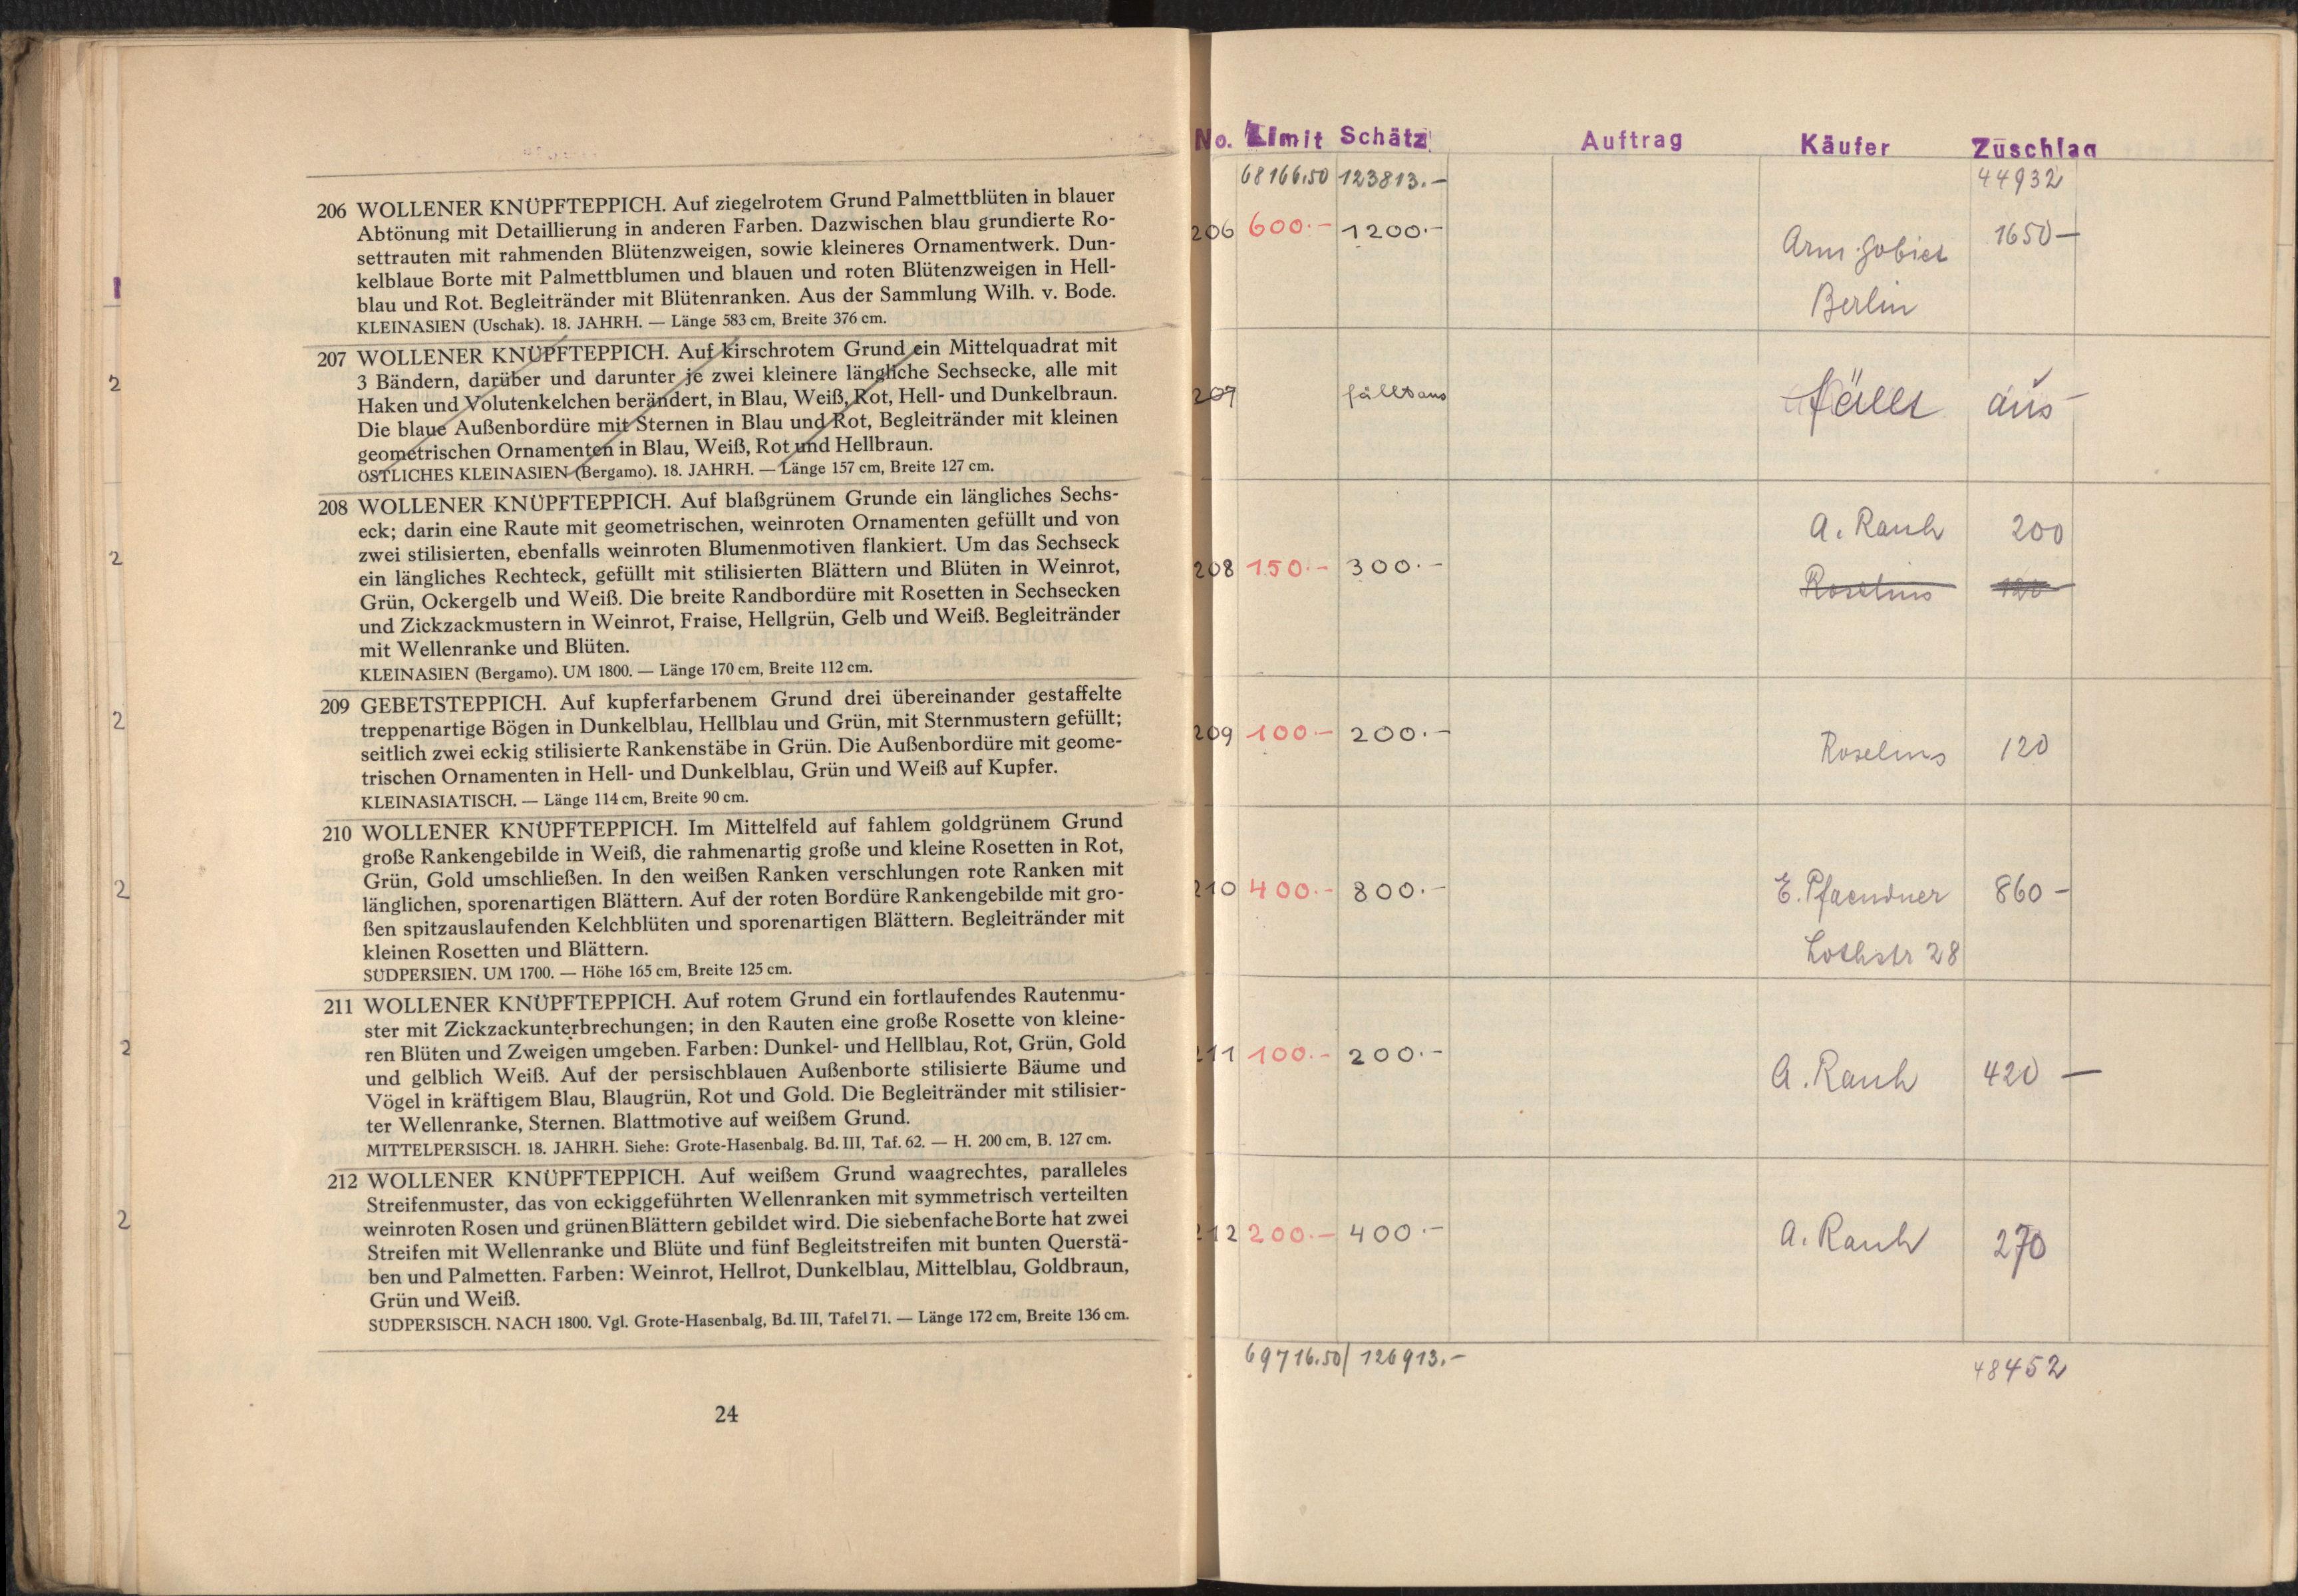 206 WOLLENER KNÜPFTEPPICH. Auf ziegelrotem Grund Palmettblüten in blauer
Abtönung mit Detaillierung in anderen Farben. Dazwischen blau grundierte Ro-
settrauten mit rahmenden Blütenzweigen, sowie kleineres Ornamentwerk. Dun-
kelblaue Borte mit Palmettblumen und blauen und roten Blütenzweigen in Hell-
blau und Rot. Begleitränder mit Blütenranken. Aus der Sammlung Wilh. v. Bode.
KLEINASIEN (Uschak). 18. JAHRH. — Länge 583 cm, Breite 376 cm.
207 WOLLENER KNÜPFTEPPICH. Auf kirschrotem Grund ein Mittelquadrat mit
3 Bändern, darüber und darunter je zwei kleinere längliche Sechsecke, alle mit
Haken und Volutenkelchen berändert, in Blau, Weiß, Rot, Hell- und Dunkelbraun.
Die blaue Außenbordüre mit Sternen in Blau und Rot, Begleitränder mit kleinen
geometrischen Ornamenten in Blau, Weiß, Rot und Hellbraun.
ÖSTLICHES KLEINASIEN (Bergamo). 18. JAHRH. — Länge 157 cm, Breite 127 cm.
208 WOLLENER KNÜPFTEPPICH. Auf blaßgrünem Grunde ein längliches Sechs-
eck; darin eine Raute mit geometrischen, weinroten Ornamenten gefüllt und von
zwei stilisierten, ebenfalls weinroten Blumenmotiven flankiert. Um das Sechseck
ein längliches Rechteck, gefüllt mit stilisierten Blättern und Blüten in Weinrot,
Grün, Ockergelb und Weiß. Die breite Randbordüre mit Rosetten in Sechsecken
und Zickzackmustern in Weinrot, Fraise, Hellgrün, Gelb und Weiß. Begleitränder
mit Wellenranke und Blüten.
KLEINASIEN (Bergamo). UM 1800. — Länge 170 cm, Breite 112 cm.
209 GEBETSTEPPICH. Auf kupferfarbenem Grund drei übereinander gestaffelte
treppenartige Bögen in Dunkelblau, Hellblau und Grün, mit Sternmustern gefüllt;
seitlich zwei eckig stilisierte Rankenstäbe in Grün. Die Außenbordüre mit geome-
trischen Ornamenten in Hell- und Dunkelblau, Grün und Weiß auf Kupfer.
KLEINASIATISCH. — Länge 114 cm, Breite 90 cm.
210 WOLLENER KNÜPFTEPPICH. Im Mittelfeld auf fahlem goldgrünem Grund
große Rankengebilde in Weiß, die rahmenartig große und kleine Rosetten in Rot,
Grün, Gold umschließen. In den weißen Ranken verschlungen rote Ranken mit
länglichen, sporenartigen Blättern. Auf der roten Bordüre Rankengebilde mit gro-
ßen spitzauslaufenden Kelchblüten und sporenartigen Blättern. Begleitränder mit
kleinen Rosetten und Blättern.
SÜDPERSIEN. UM 1700. — Höhe 165 cm, Breite 125 cm.
211 WOLLENER KNÜPFTEPPICH. Auf rotem Grund ein fortlaufendes Rautenmu-
ster mit Zickzackunterbrechungen; in den Rauten eine große Rosette von kleine-
ren Blüten und Zweigen umgeben. Farben: Dunkel- und Hellblau, Rot, Grün, Gold
und gelblich Weiß. Auf der persischblauen Außenborte stilisierte Bäume und
Vögel in kräftigem Blau, Blaugrün, Rot und Gold. Die Begleitränder mit stilisier-
ter Wellenranke, Sternen. Blattmotive auf weißem Grund.
MITTELPERSISCH. 18. JAHRH. Siehe: Grote-Hasenbalg. Bd. III, Taf. 62. — H. 200 cm, B. 127 cm.
212 WOLLENER KNÜPFTEPPICH. Auf weißem Grund waagrechtes, paralleles
Streifenmuster, das von eckiggeführten Wellenranken mit symmetrisch verteilten
weinroten Rosen und grünen Blättern gebildet wird. Die siebenfache Borte hat zwei
Streifen mit Wellenranke und Blüte und fünf Begleitstreifen mit bunten Querstä-
ben und Palmetten. Farben: Weinrot, Hellrot, Dunkelblau, Mittelblau, Goldbraun,
Grün und Weiß.
SÜDPERSISCH. NACH 1800. Vgl. Grote-Hasenbalg, Bd. III, Tafel 71. — Länge 172 cm, Breite 136 cm.
24
1
2
2
2
2
2
2
No. Limit Schätz. Auftrag Käufer Zuschlag
68166.50 123813.- 44932
206 600.- 1200.- 1650-
Berlin
207 fällt aus fällt aus
208 150.- 300.- A. Rauh 200
Roselius 120
209 100.- 200.- Roselius 120
210 400.- 800.- E. Pfaendner 860-
Lothstr 28
211 100.- 200.- A. Rauh 420-
212 200.- 400.- A. Rauh 270
69716.50 126913.- 48452